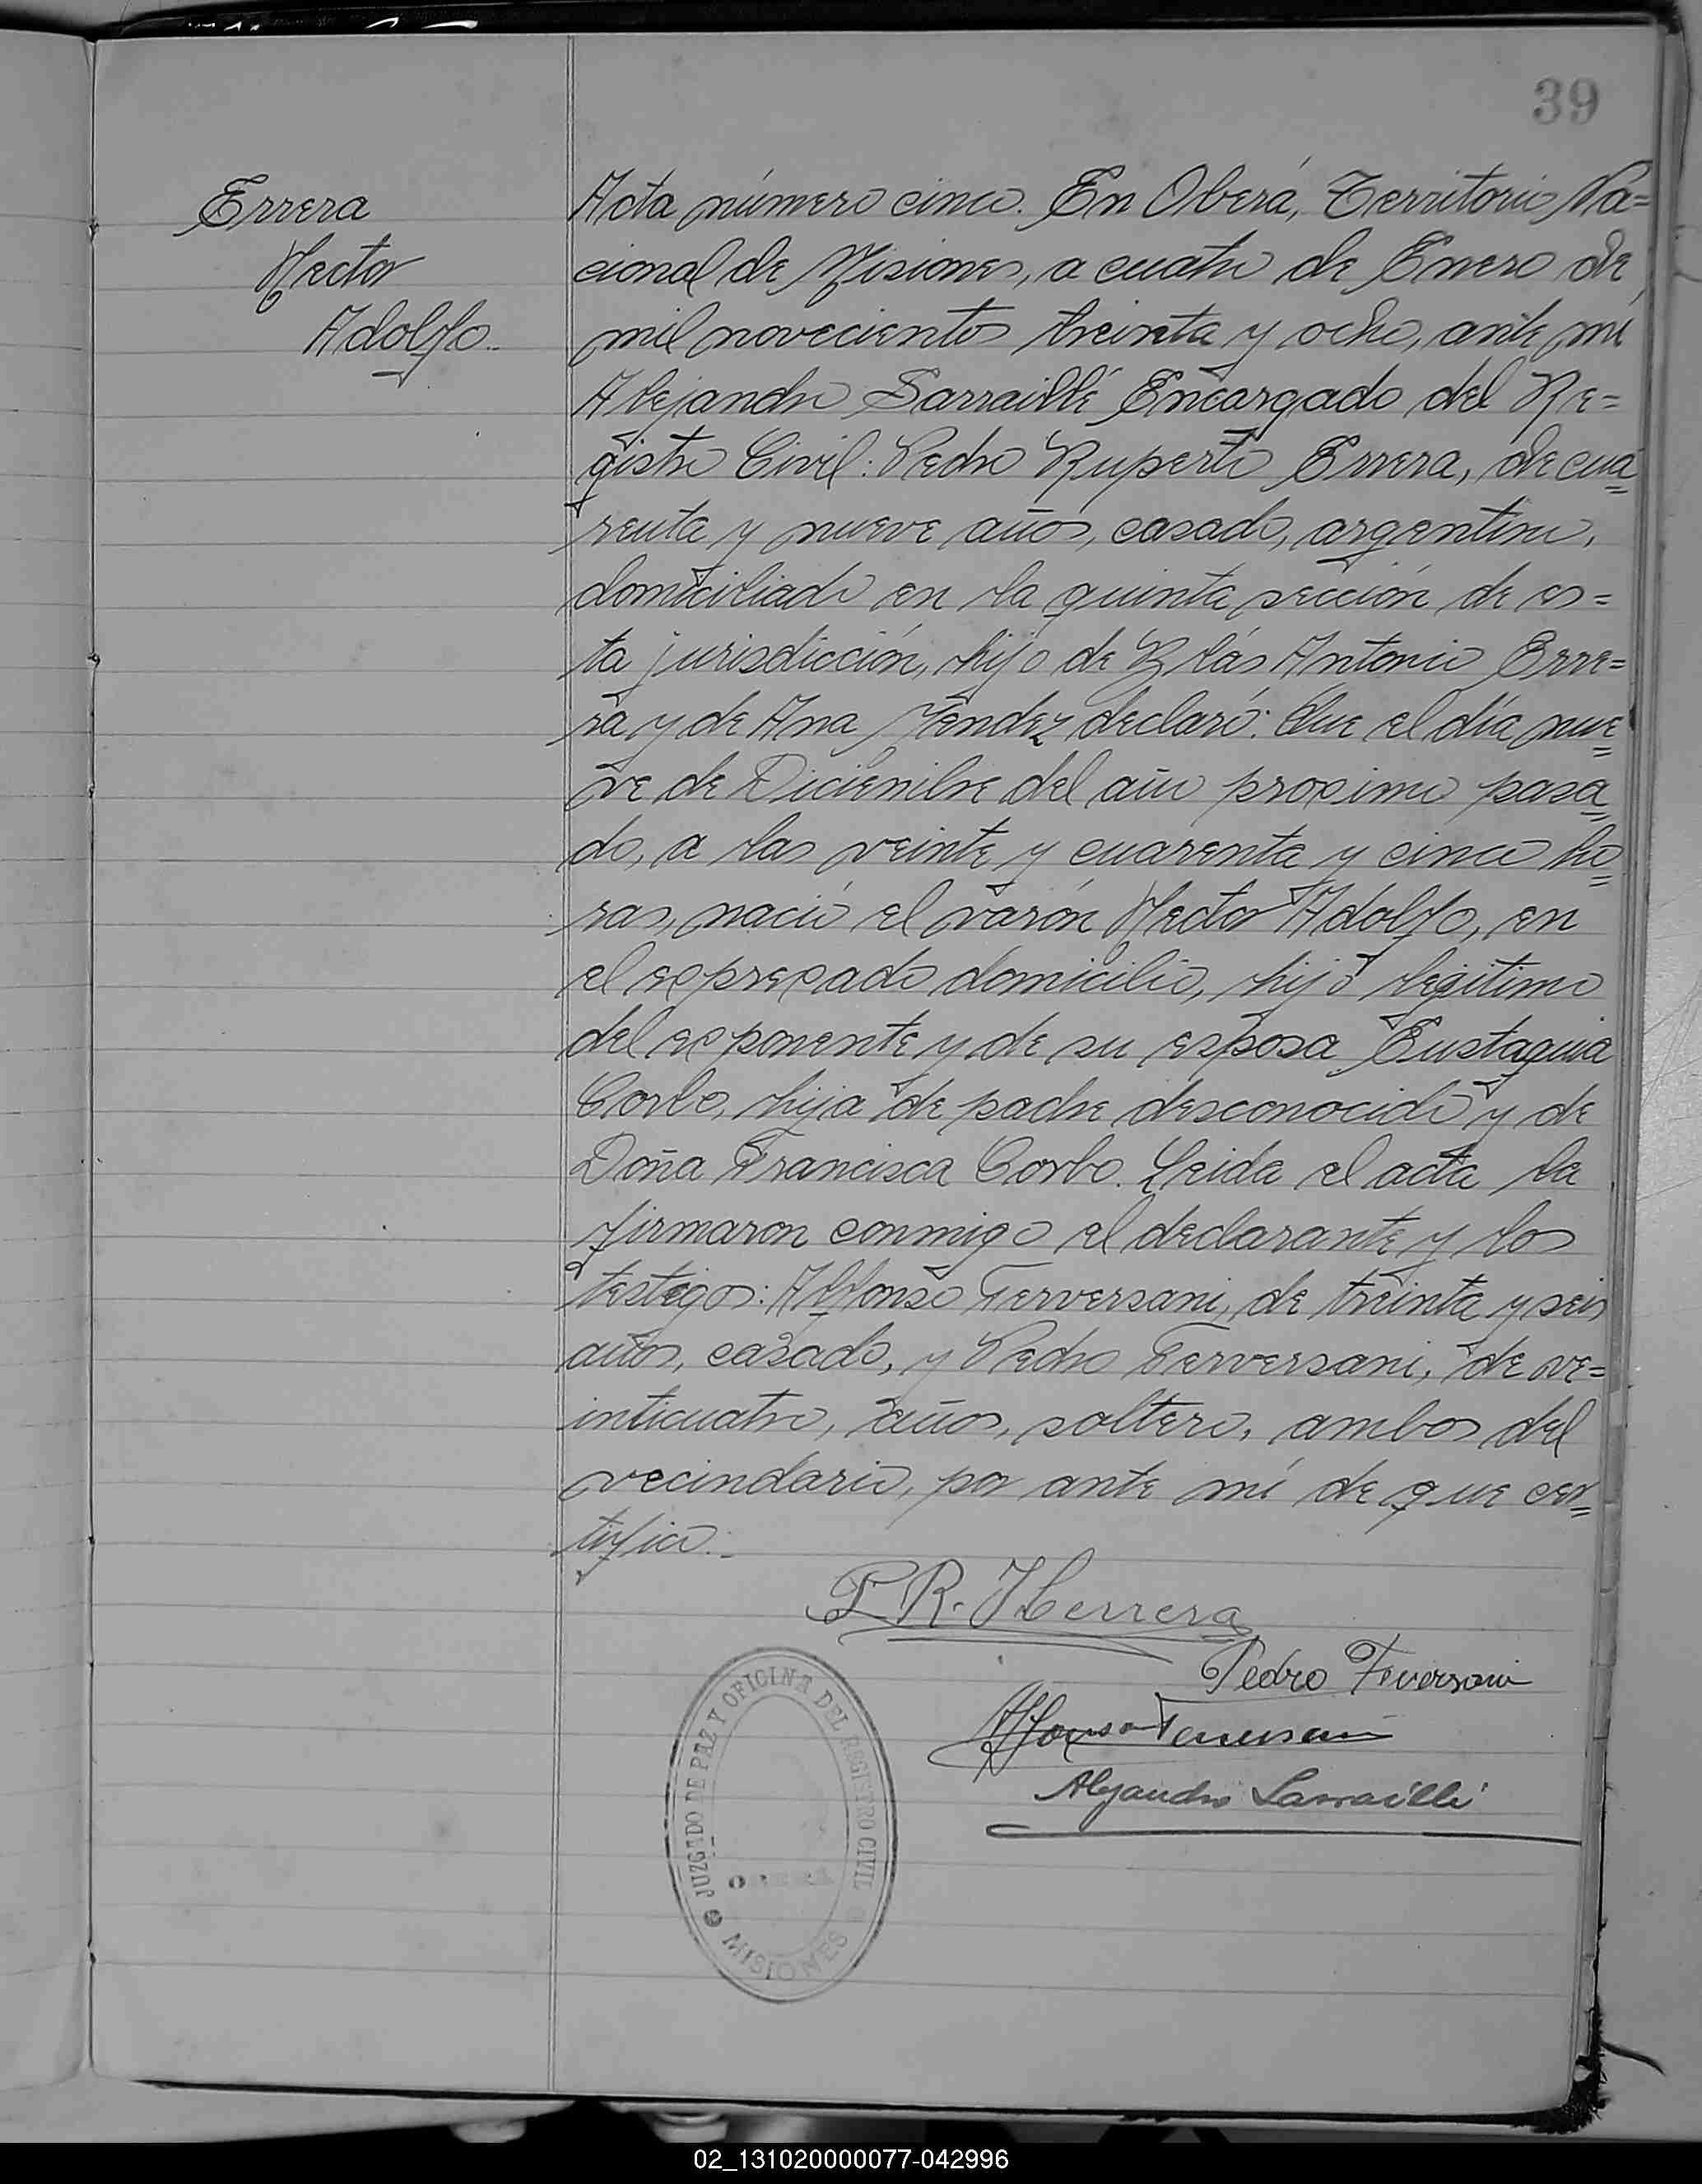 39
Errera
Hector
Adolfo.
Acta número cinco. En Oberá, Territorio Na=
cional de Misiones, a cuatro de Enero de
mil novecientos treinta y ocho, ante mí
Alejandro Sarraillé Encargado del Re=
gistro Civil: Pedro Ruperto Errera, de cua=
renta y nueve años, casado, argentino,
domiciliado en la quinta sección de es=
ta jurisdicción, hijo de Blás Antonio Erre=
ra y de Ana Mendez declaró: Que el día nue=
ve de Diciembre del año proximo pasa=
do, a las veinte y cuarenta y cinco ho=
ras, nació el varón Hector Adolfo, en
el expresado domicilio, hijo legitimo
del exponente y de su esposa Eustaquia
Corbo, hija de padre desconocido y de
Doña Francisca Corbo. Leida el acta la
firmaron conmigo el declarante y los
testigos: Alfonso Ferversani, de treinta y seis
años, casado, y Pedro Ferversani, de ve=
inticuatro, años, soltero, ambos del
vecindario, por ante mí de que cer=
tifico.
P. R. Herrera
Pedro Feversani
Alfonso
Alejandro Sarraillé
JUZGADO DE PAZ Y OFICINA DEL REGISTRO CIVIL
OBERÁ
MISIONES
02_131020000077-042996